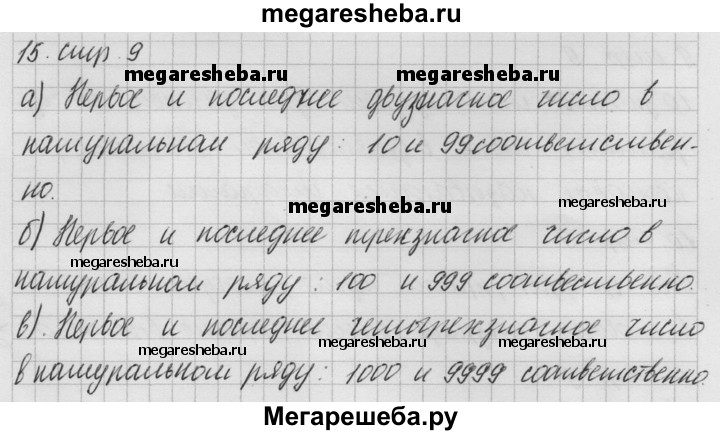 megaresheba.ru
15. стр. 9
megaresheba.ru megaresheba.ru
а) Первое и последнее двузначное число в
натуральном ряду: 10 и 99 соответствен-
но.
megaresheba.ru
megaresheba.ru
б) Первое и последнее трехзначное число в
megaresheba.ru megaresheba.ru
натуральном ряду: 100 и 999 соотвественно.
в). Первое и последнее четырехзначное число
megaresheba.ru megaresheba.ru megaresheba.ru
в натуральном ряду: 1000 и 9999 соответственно.
Мегарешеба.ру